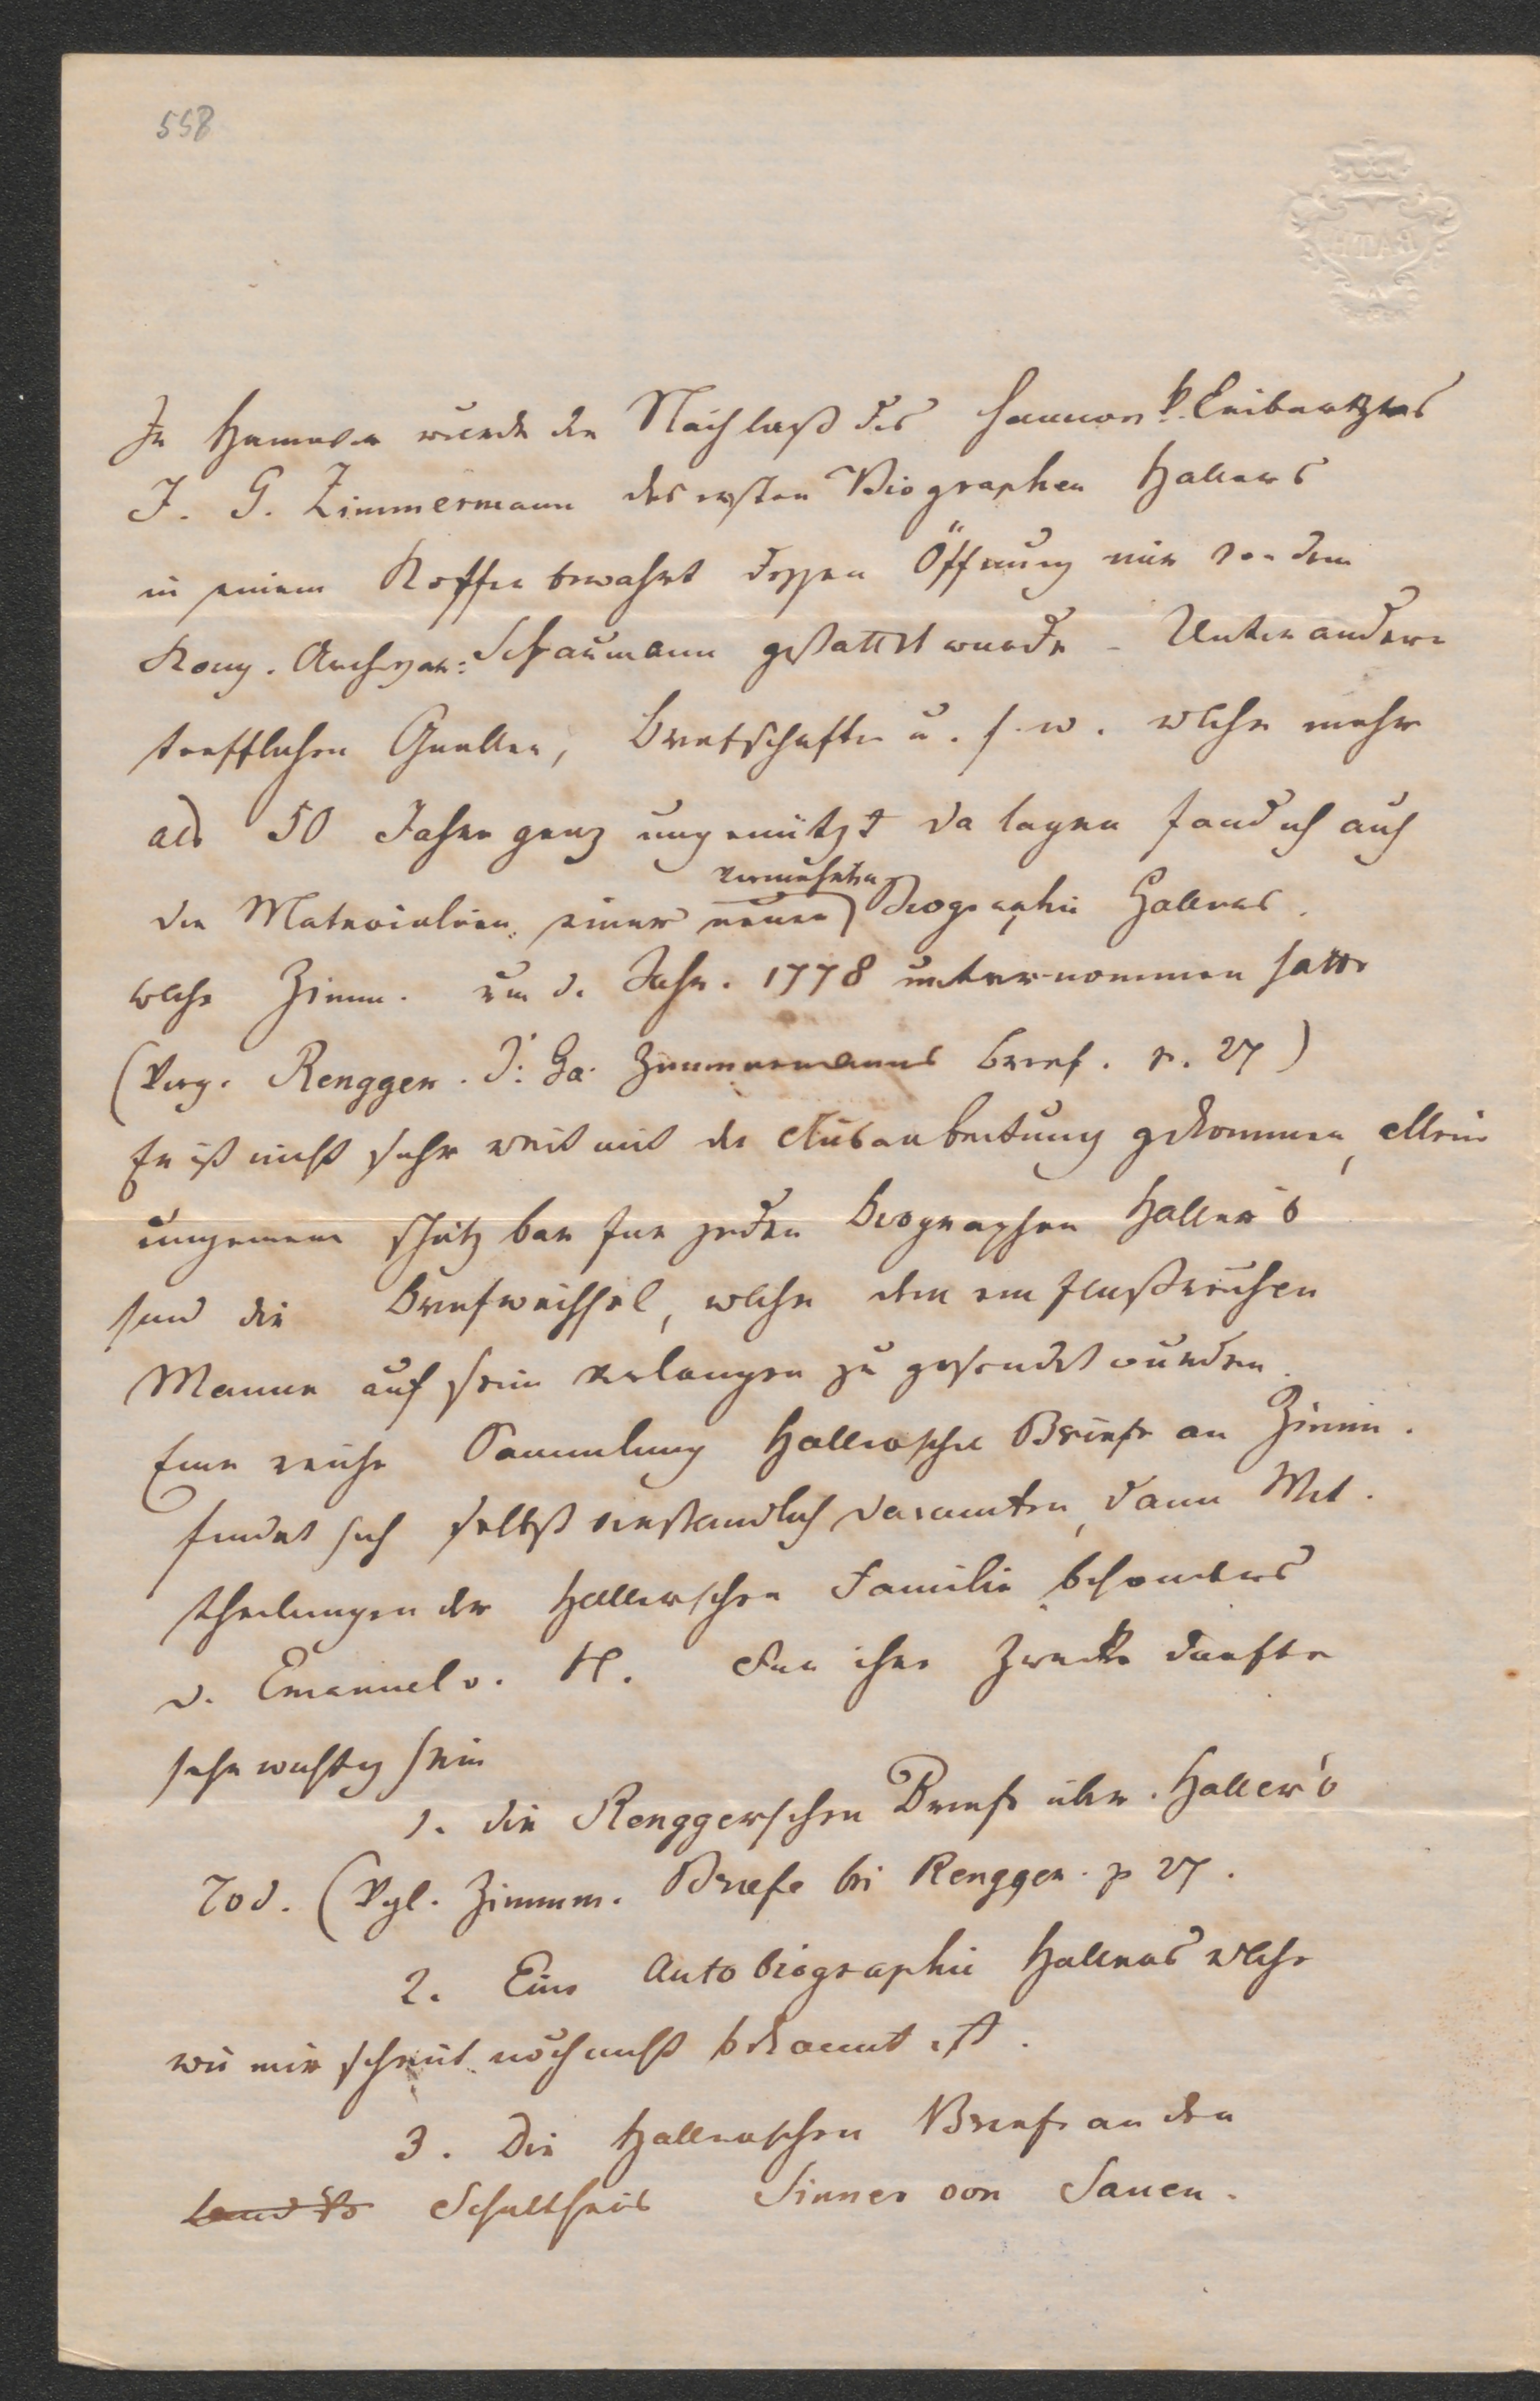 558
In Hannover wurde der Nachlaß des hannov. k. Leibarztes
J. G. Zimmermann des ersten Biographen Hallers
in einem Koffer bewahrt dessen Öffnung mir von dem
König. Archivar: Schaumann gestattet wurde – Unter andern
trefflichen Quellen, Briefschaften u. s. w. welche mehr
als 50 Jahre ganz ungenützt da lagen fand ich auch
vermehrten
die Materialien einer neuen Biographie Hallers.
welche Zimm. um d. Jahr. 1778 unternommen hatte
(Verg. Rengger. J: Ga. Zimmermanns Brief. p. 27)
Er ist nicht sehr weit mit der Ausarbeitung gekommen, allein
ungemein schätzbar für jeden Biographen Haller's
sind die Briefwechsel, welche dem einflußreichen
Manne auf sein Verlangen zu gesendet wurden.
Eine reiche Sammlung Hallersche Briefe an Zimm.
findet sich selbst verständlich darunter, dann Mit.
theilungen der Hallerschen Familie besonders
v. Emanuel v. H. Für ihre Zwecke dürfte
sehr wichtig sein
1. die Renggerschen Briefe über Haller's
Tod. (Vgl. Zimmm. Briefe bei Rengger. p 27.
2. Eine Autobiographie Hallers welche
wie mir scheint noch nicht bekannt ist.
3. Die Hallerschen Briefe an den
Schultheis Sinner von Sanen.